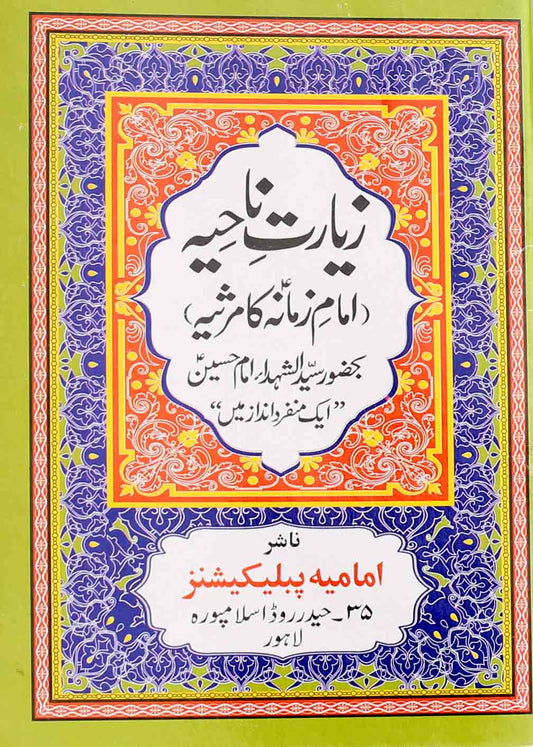 زیارتِ ناحیہ
(امامِ زمانہؑ کا مرثیہ)
بحضور سیّد الشہداء امام حسینؑ
"ایک منفرد انداز میں"
ناشر
امامیہ پبلیکیشنز
۳۵۔ حیدر روڈ اسلامپورہ
لاہور